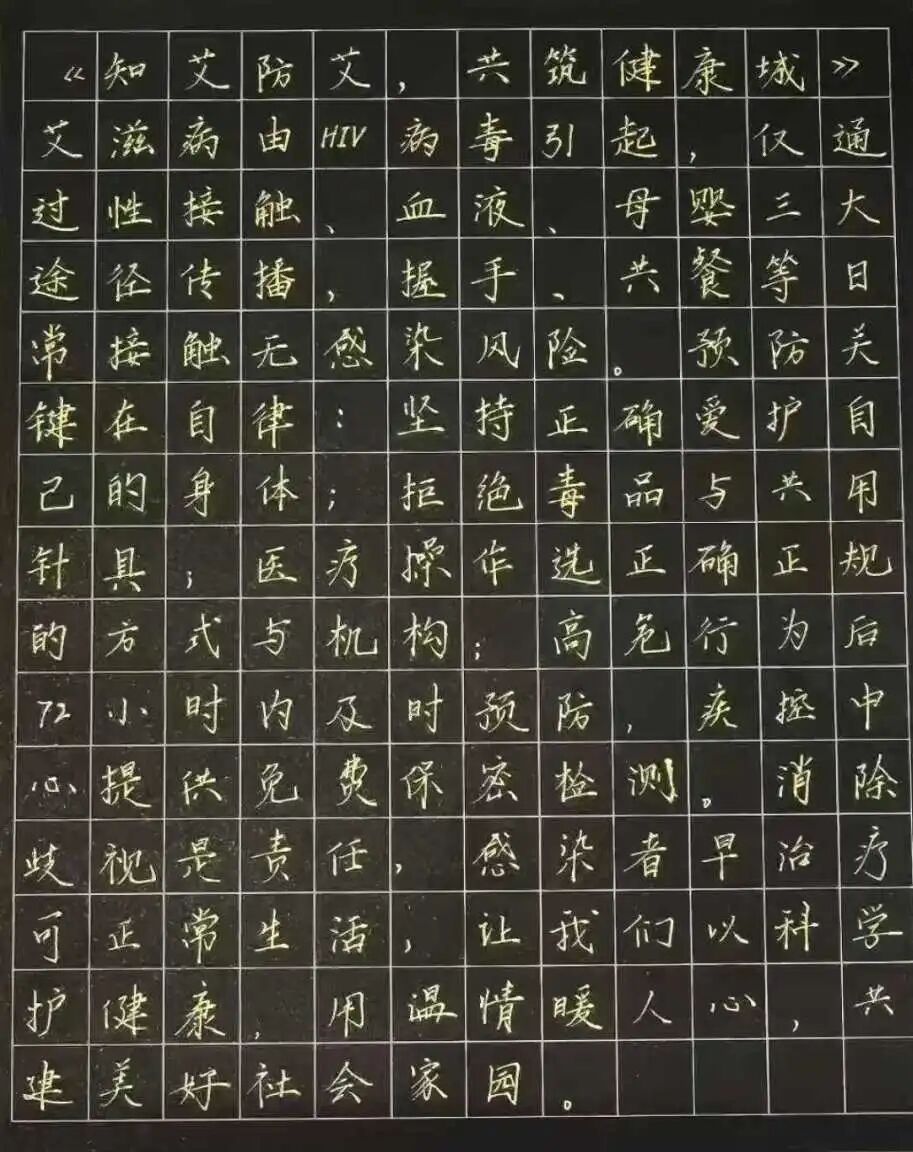 《知艾防艾，共筑健康城》
艾滋病由HIV病毒引起，仅通
过性接触、血液、母婴三大
途径传播，握手、共餐等日
常接触无感染风险。预防关
键在自律：坚持正确爱护自
己的身体；拒绝毒品与共用
针具；医疗操作选正确正规
的方式与机构；高危行为后
72小时内及时预防，疾控中
心提供免费保密检测。消除
歧视是责任，感染者早治疗
可正常生活，让我们以科学
护健康，用温情暖人心，共
建美好社会家园。